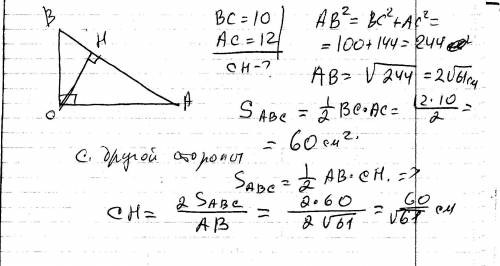 B
H
C
A
BC = 10
AC = 12
CH - ?
AB² = BC² + AC² =
= 100 + 144 = 244
AB = √244 = 2√61 см
S ABC = 1/2 BC · AC = 12·10/2 =
= 60 см².
С другой стороны
S ABC = 1/2 AB · CH. =>
CH = 2 S ABC / AB = 2·60 / 2√61 = 60/√61 см